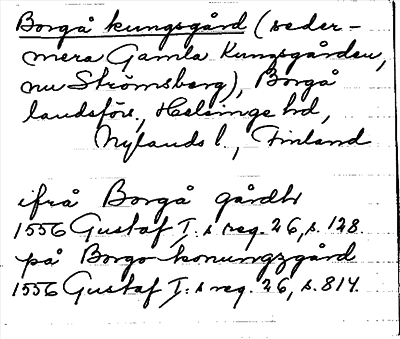 Borgå kungsgård (seder-
mera Gamla Kungsgården,
nu Strömsberg), Borgå
landsförs., Helsinge hd,
Nylands l., Finland
ifrå Borgå gårdh
1556 Gustaf I:s reg. 26, s. 128.
på Borgo konungzgård
1556 Gustaf I:s reg. 26, s. 814.